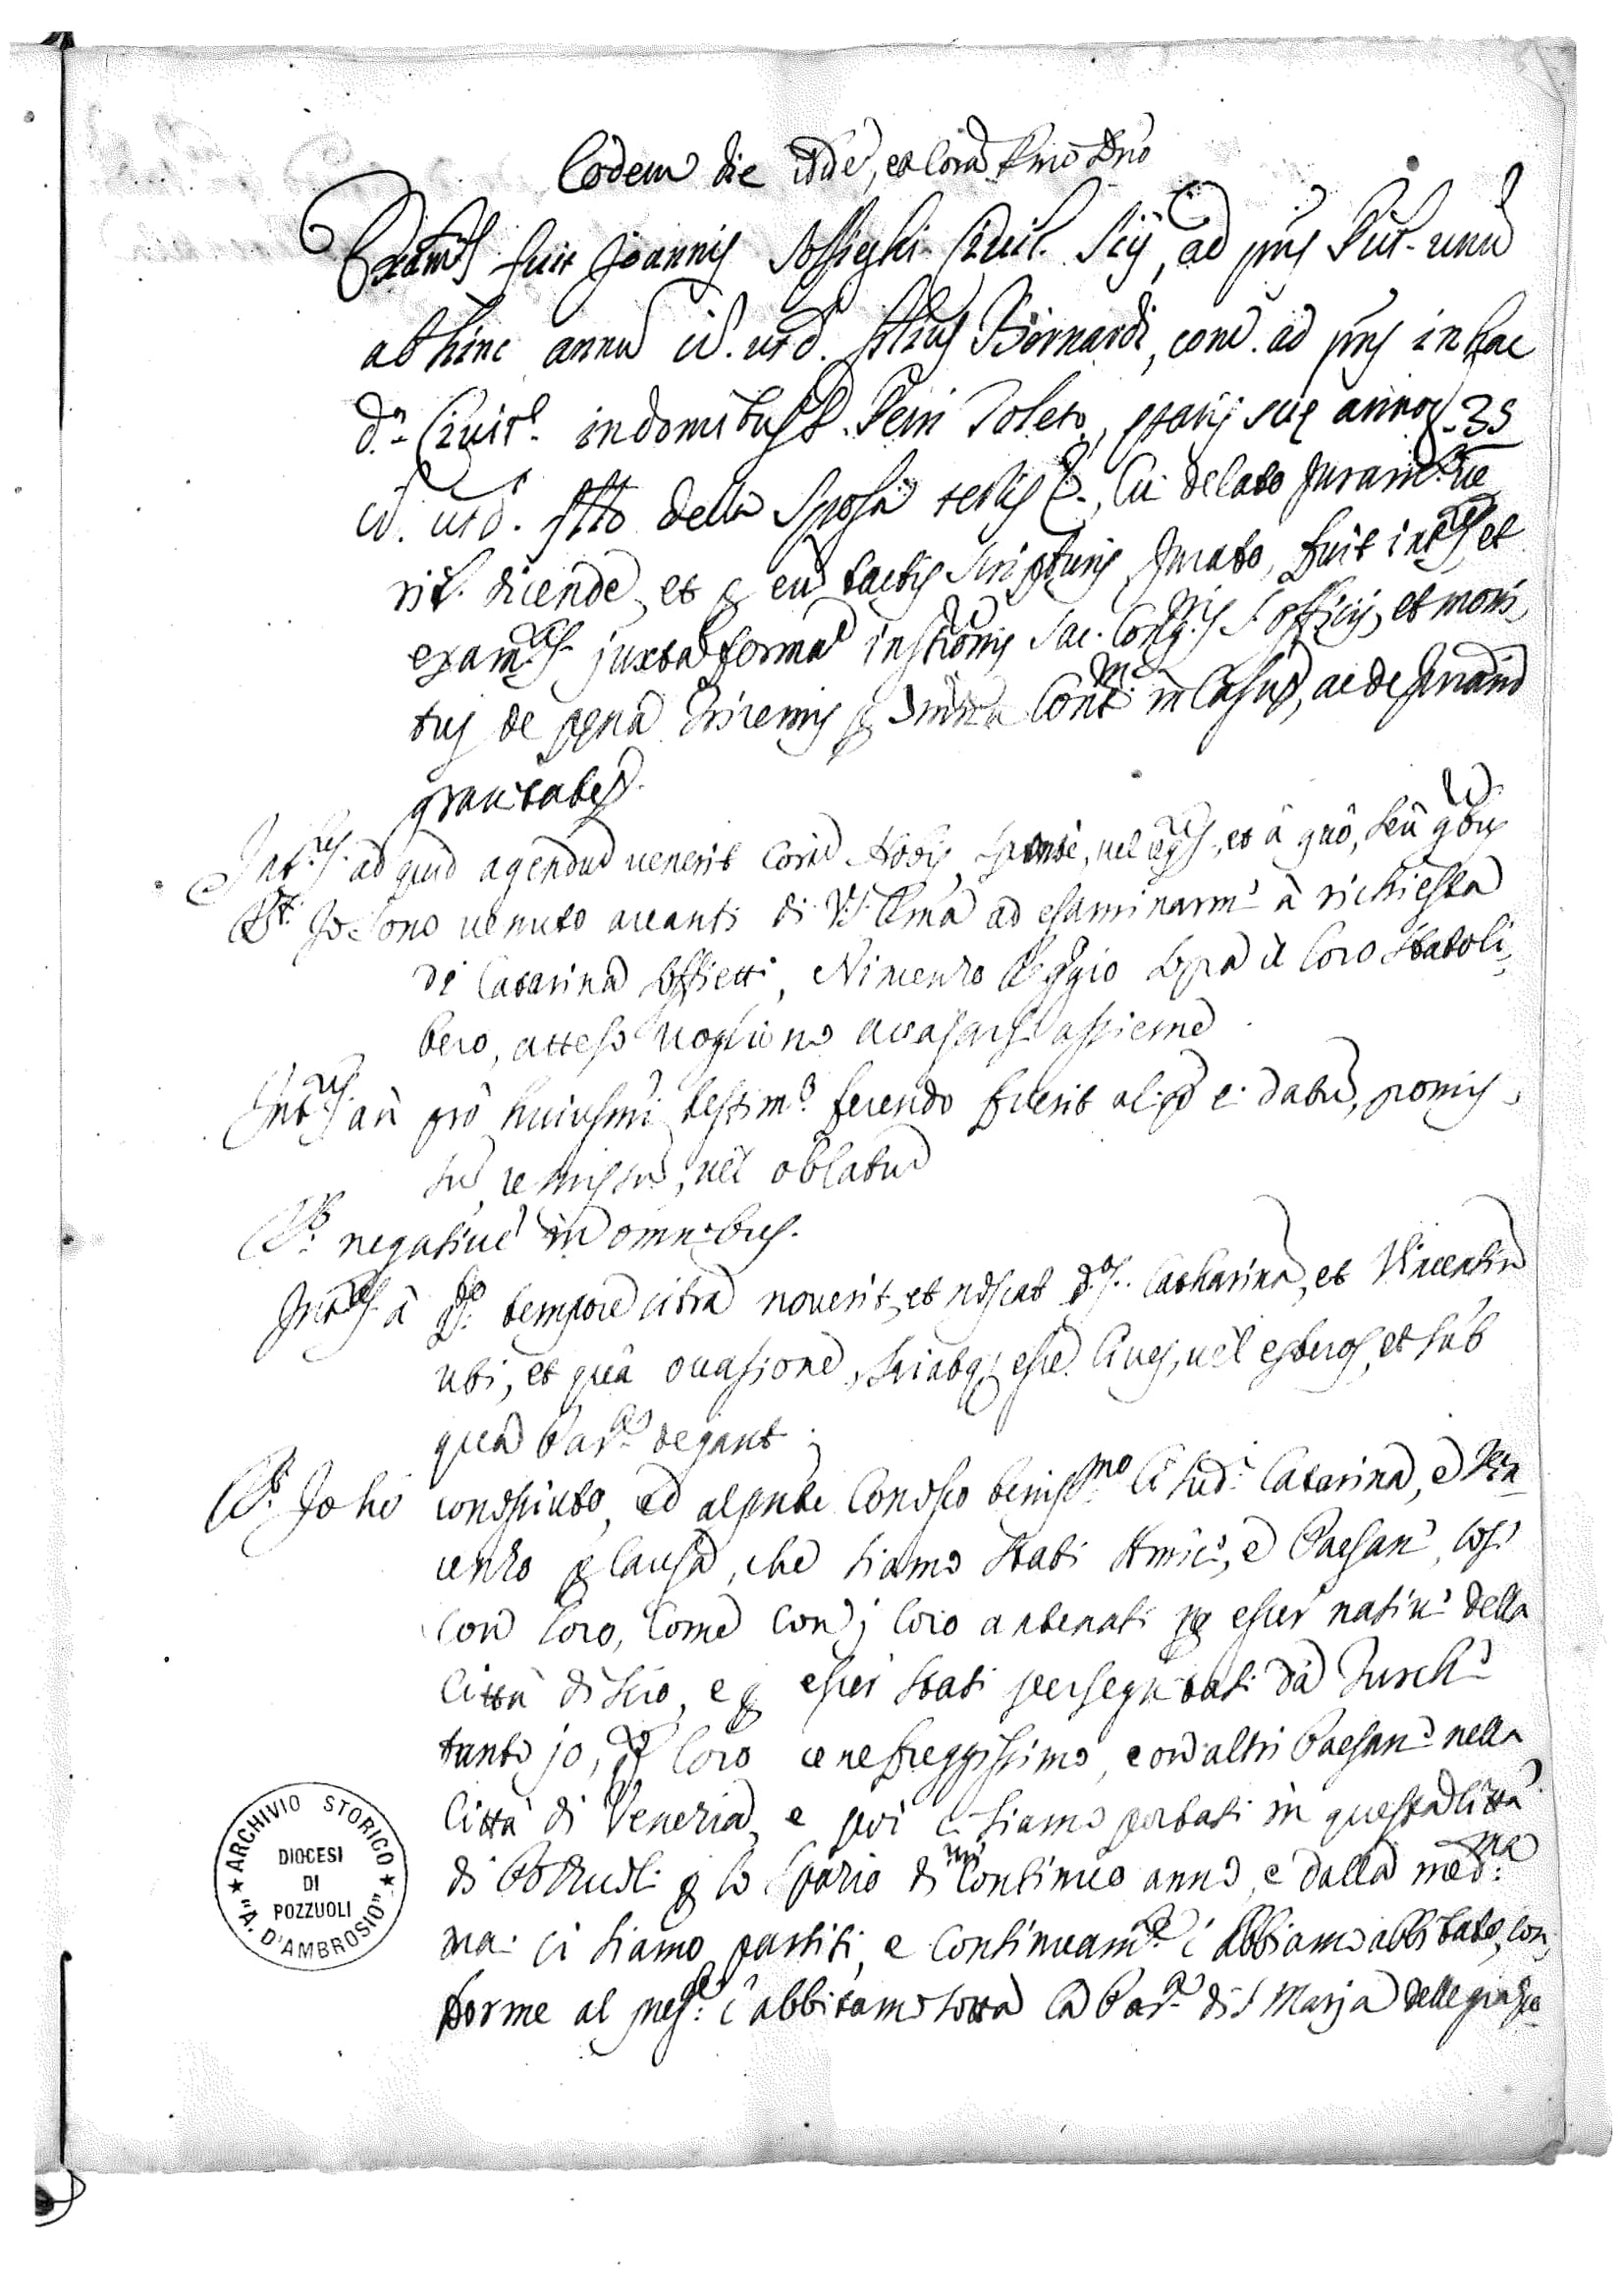 Eodem die ibidē, et Corā Rmō Dnō
Exam.s fuit Joannis Civit. Scij, ad pns Put. unū
ab hinc annū ut d. filius Bernardi, com. ad pns in hac
d.a Civit.e in domibus D. Petri Toleto, ętatis suę annor. 35
ut d. della Sposa testis &, Cui delato Juram.to ve
rit. dicende, et p eū tactis scripturis Jurato, fuit int.s et
exam.s juxta formā instrōnis Sac. Cong.nis S. Officij, et moni,
tus de pęna Triremis in Casus, ac de Jurandi
gravitate.
Int.s ad quid agendū venerit corā Nobis, sponte, vel req.s, et à quō, seū qbus
R.t Jo Sono venuto avanti di V.S. Illma ad esaminarmi à richiesta
di Catarina Offietti, Nincenzo Reggio sopra il loro stato li,
bero, atteso vogliono accasarsi assieme.
Int.s an prō huiusmi testim.o ferendo fuerit aliqd ei datū, promis,
sū remissū, vel oblatū
R.t negativè in omnibus.
Int.s à q.o tempore citrà noverit, et noscat d.os Catharinā, et Vincentiū
ubi, et quâ occasione, sciatq; esse Cives, vel exteros, et sub
qua Par.a degant.
R.t Jo hò conosciuto, ed al pnte Conosco beniss.mo li sud.i Catarina, è Vin
cenzo p causa, che siamo stati Amici, è Paesani, così
con loro, come con j loro antenati p esser nativi della
Città di Scio, e p esser stati perseguitati da Turchi
tanto jo, q.to loro ce ne freggissimo, con altri Paesani nella
Città di Venezia, e poi ci siamo portati in questa Città
di Pozzuoli p lo Spazio di un Continuo anno, e dalla med.ma
mai ci siamo partiti, e Continuam.te c'abbiamo abbitato, con,
forme al pres.te c'abbitamo sotto la Par.a di S. Maria delle grazie
ARCHIVIO STORICO
DIOCESI
DI
POZZUOLI
"A. D'AMBROSIO"